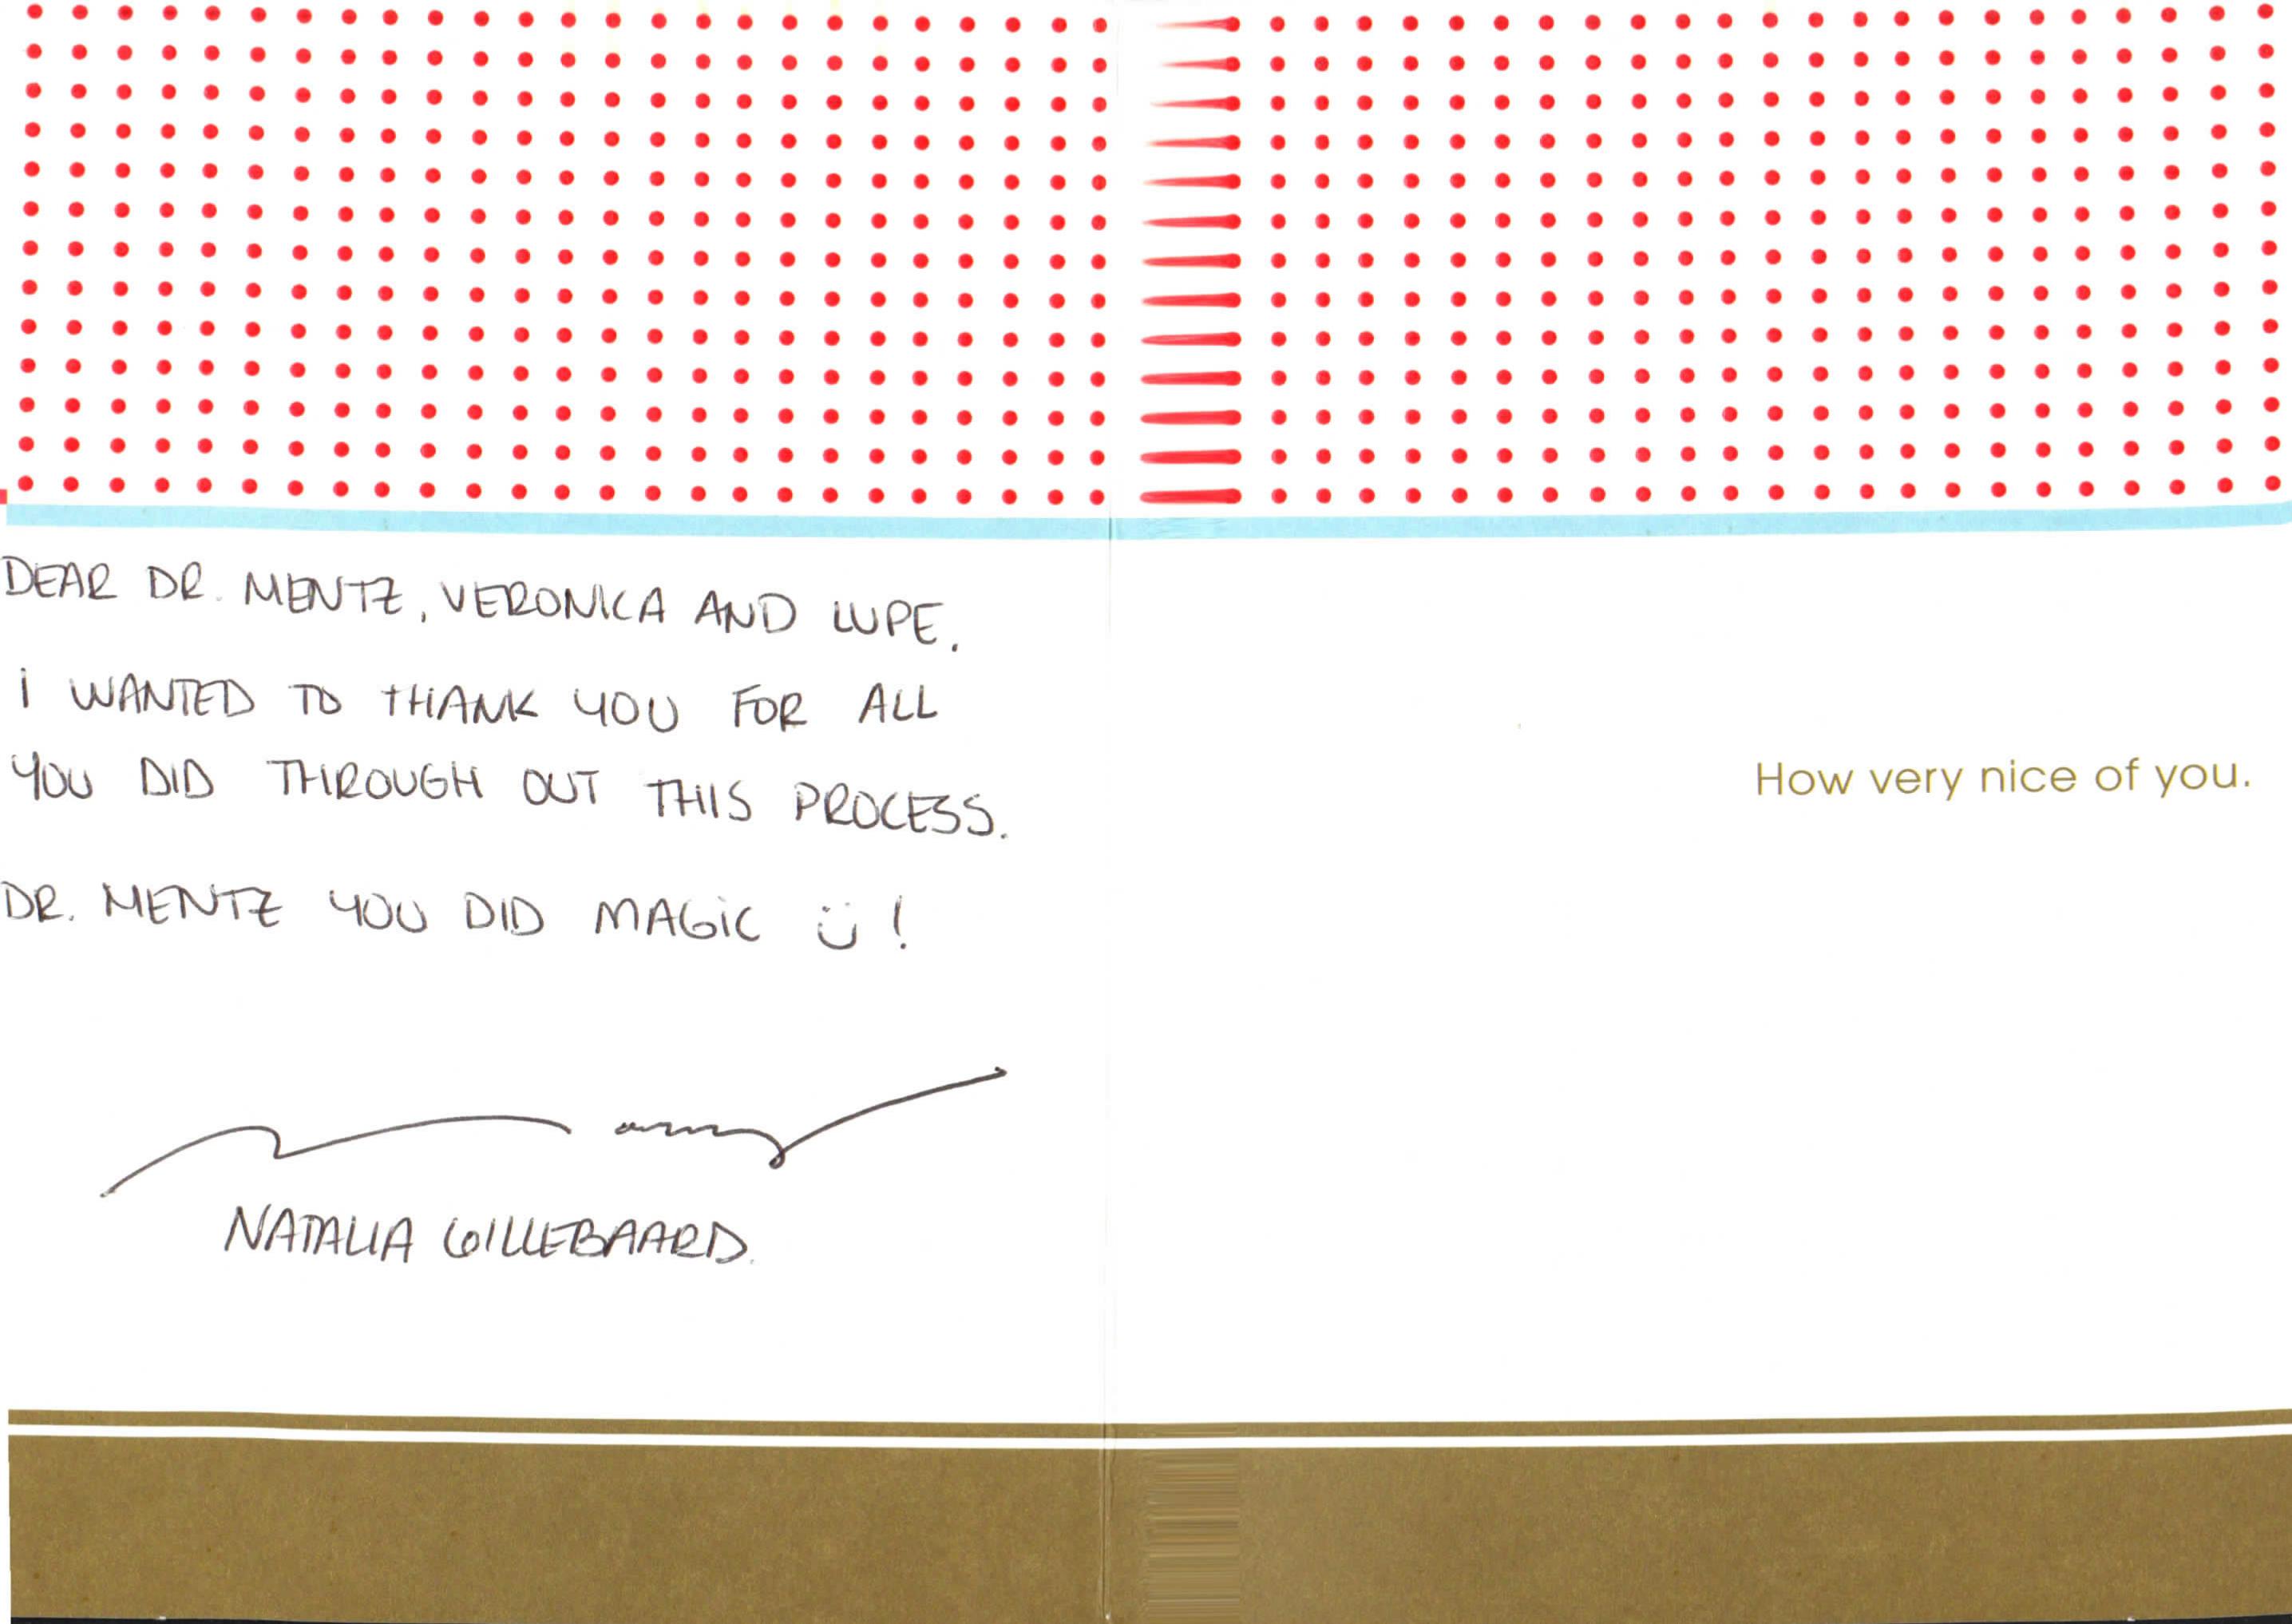 DEAR DR. MENTZ, VERONICA AND LUPE.
I WANTED TO THANK YOU FOR ALL
YOU DID THROUGH OUT THIS PROCESS.
DR. MENTZ YOU DID MAGIC Ü !
NATALIA WILLEBAARD.
How very nice of you.